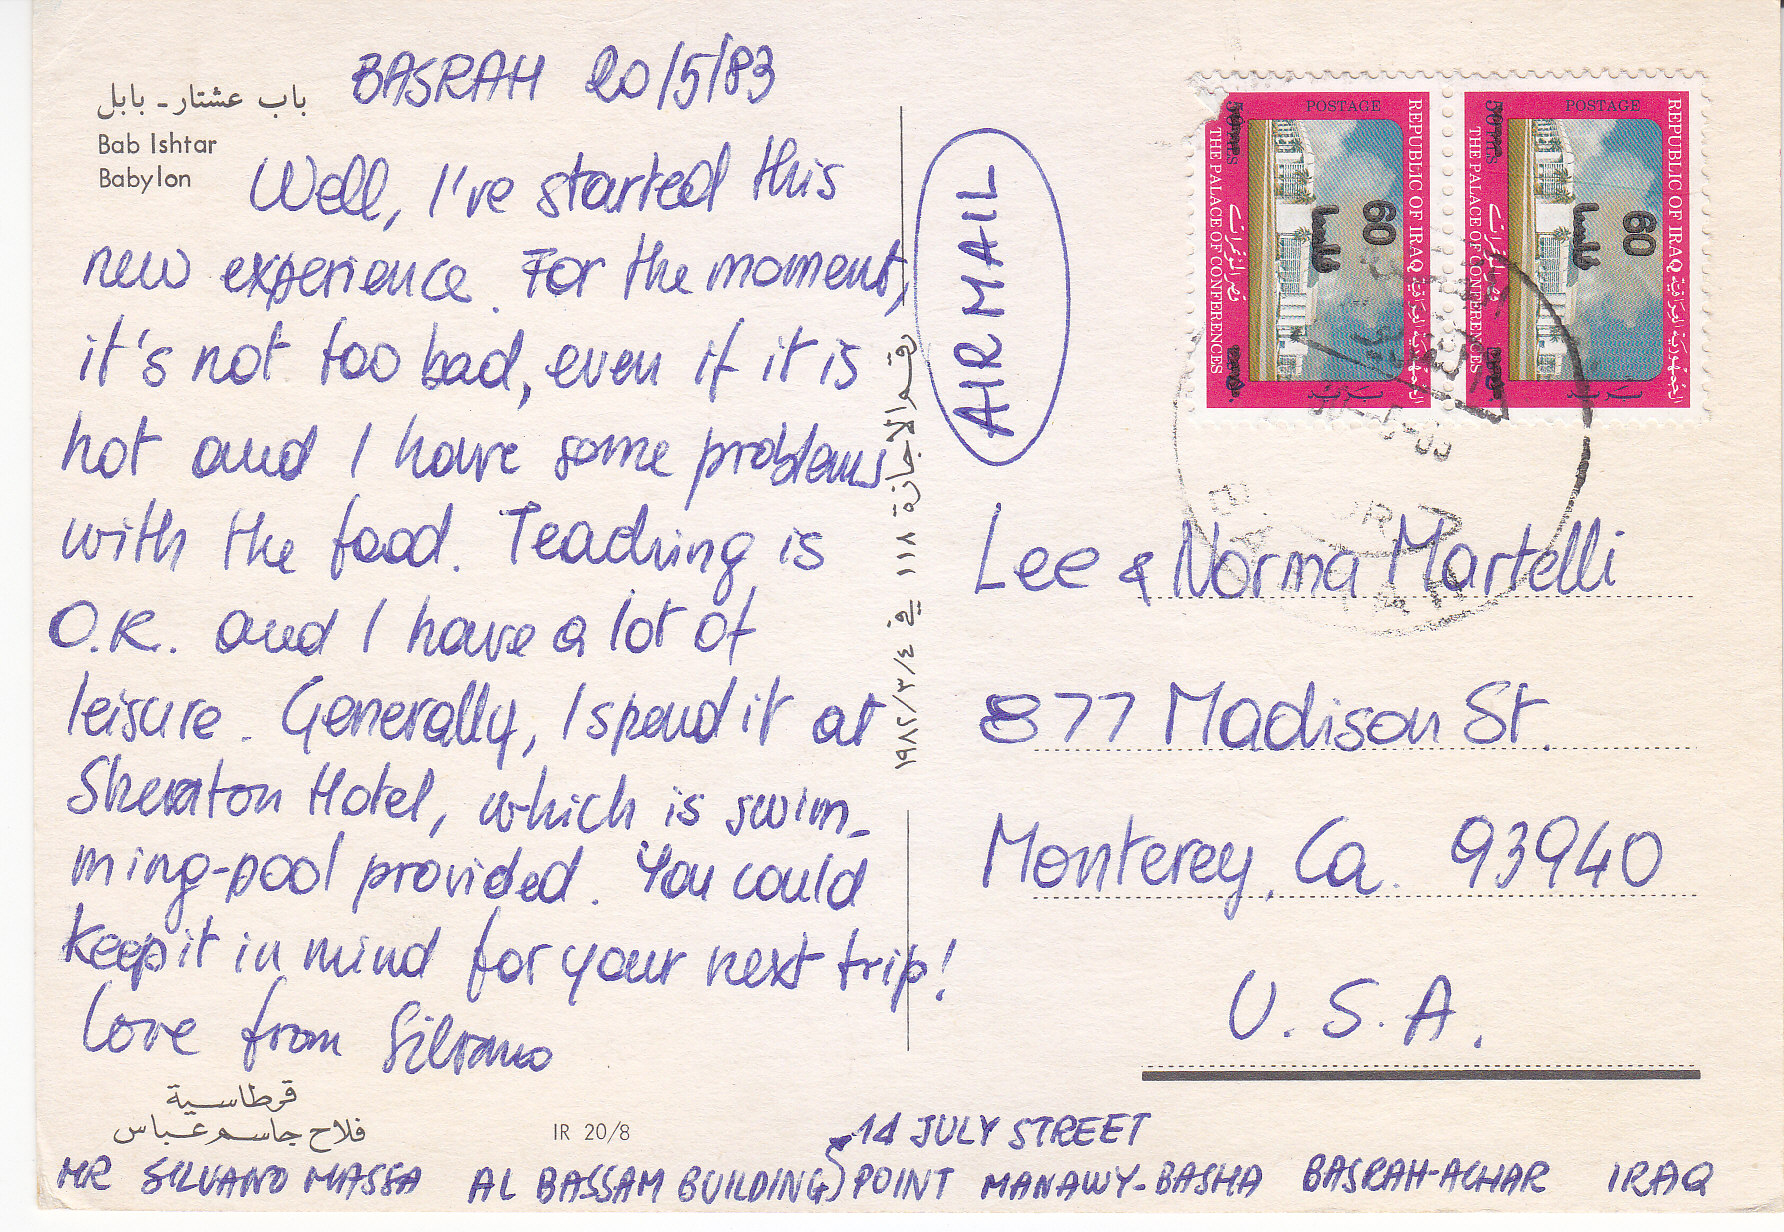 باب عشتار - بابل
Bab Ishtar
Babylon
BASRAH 20/5/83
Well, I've started this
new experience. For the moment,
it's not too bad, even if it is
hot and I have some problems
with the food. Teaching is
O.K. and I have a lot of
leisure. Generally, I spend it at
Sheraton Hotel, which is swim-
ming-pool provided. You could
keep it in mind for your next trip!
Love from Silvano
قرطاسية
فلاح جاسم عباس
IR 20/8
رقم الاجازة ١١٨ في ١٩٨٢/٣/٤
AIR MAIL
POSTAGE
REPUBLIC OF IRAQ الجمهورية العراقية
60
فلسا
THE PALACE OF CONFERENCES قصر المؤتمرات
POSTAGE
REPUBLIC OF IRAQ الجمهورية العراقية
60
فلسا
THE PALACE OF CONFERENCES قصر المؤتمرات
Lee & Norma Martelli
877 Madison St.
Monterey, Ca. 93940
U.S.A.
14 JULY STREET
MR SILVANO MASSA AL BASSAM BUILDING POINT MANAWY-BASHA BASRAH-ACHAR IRAQ